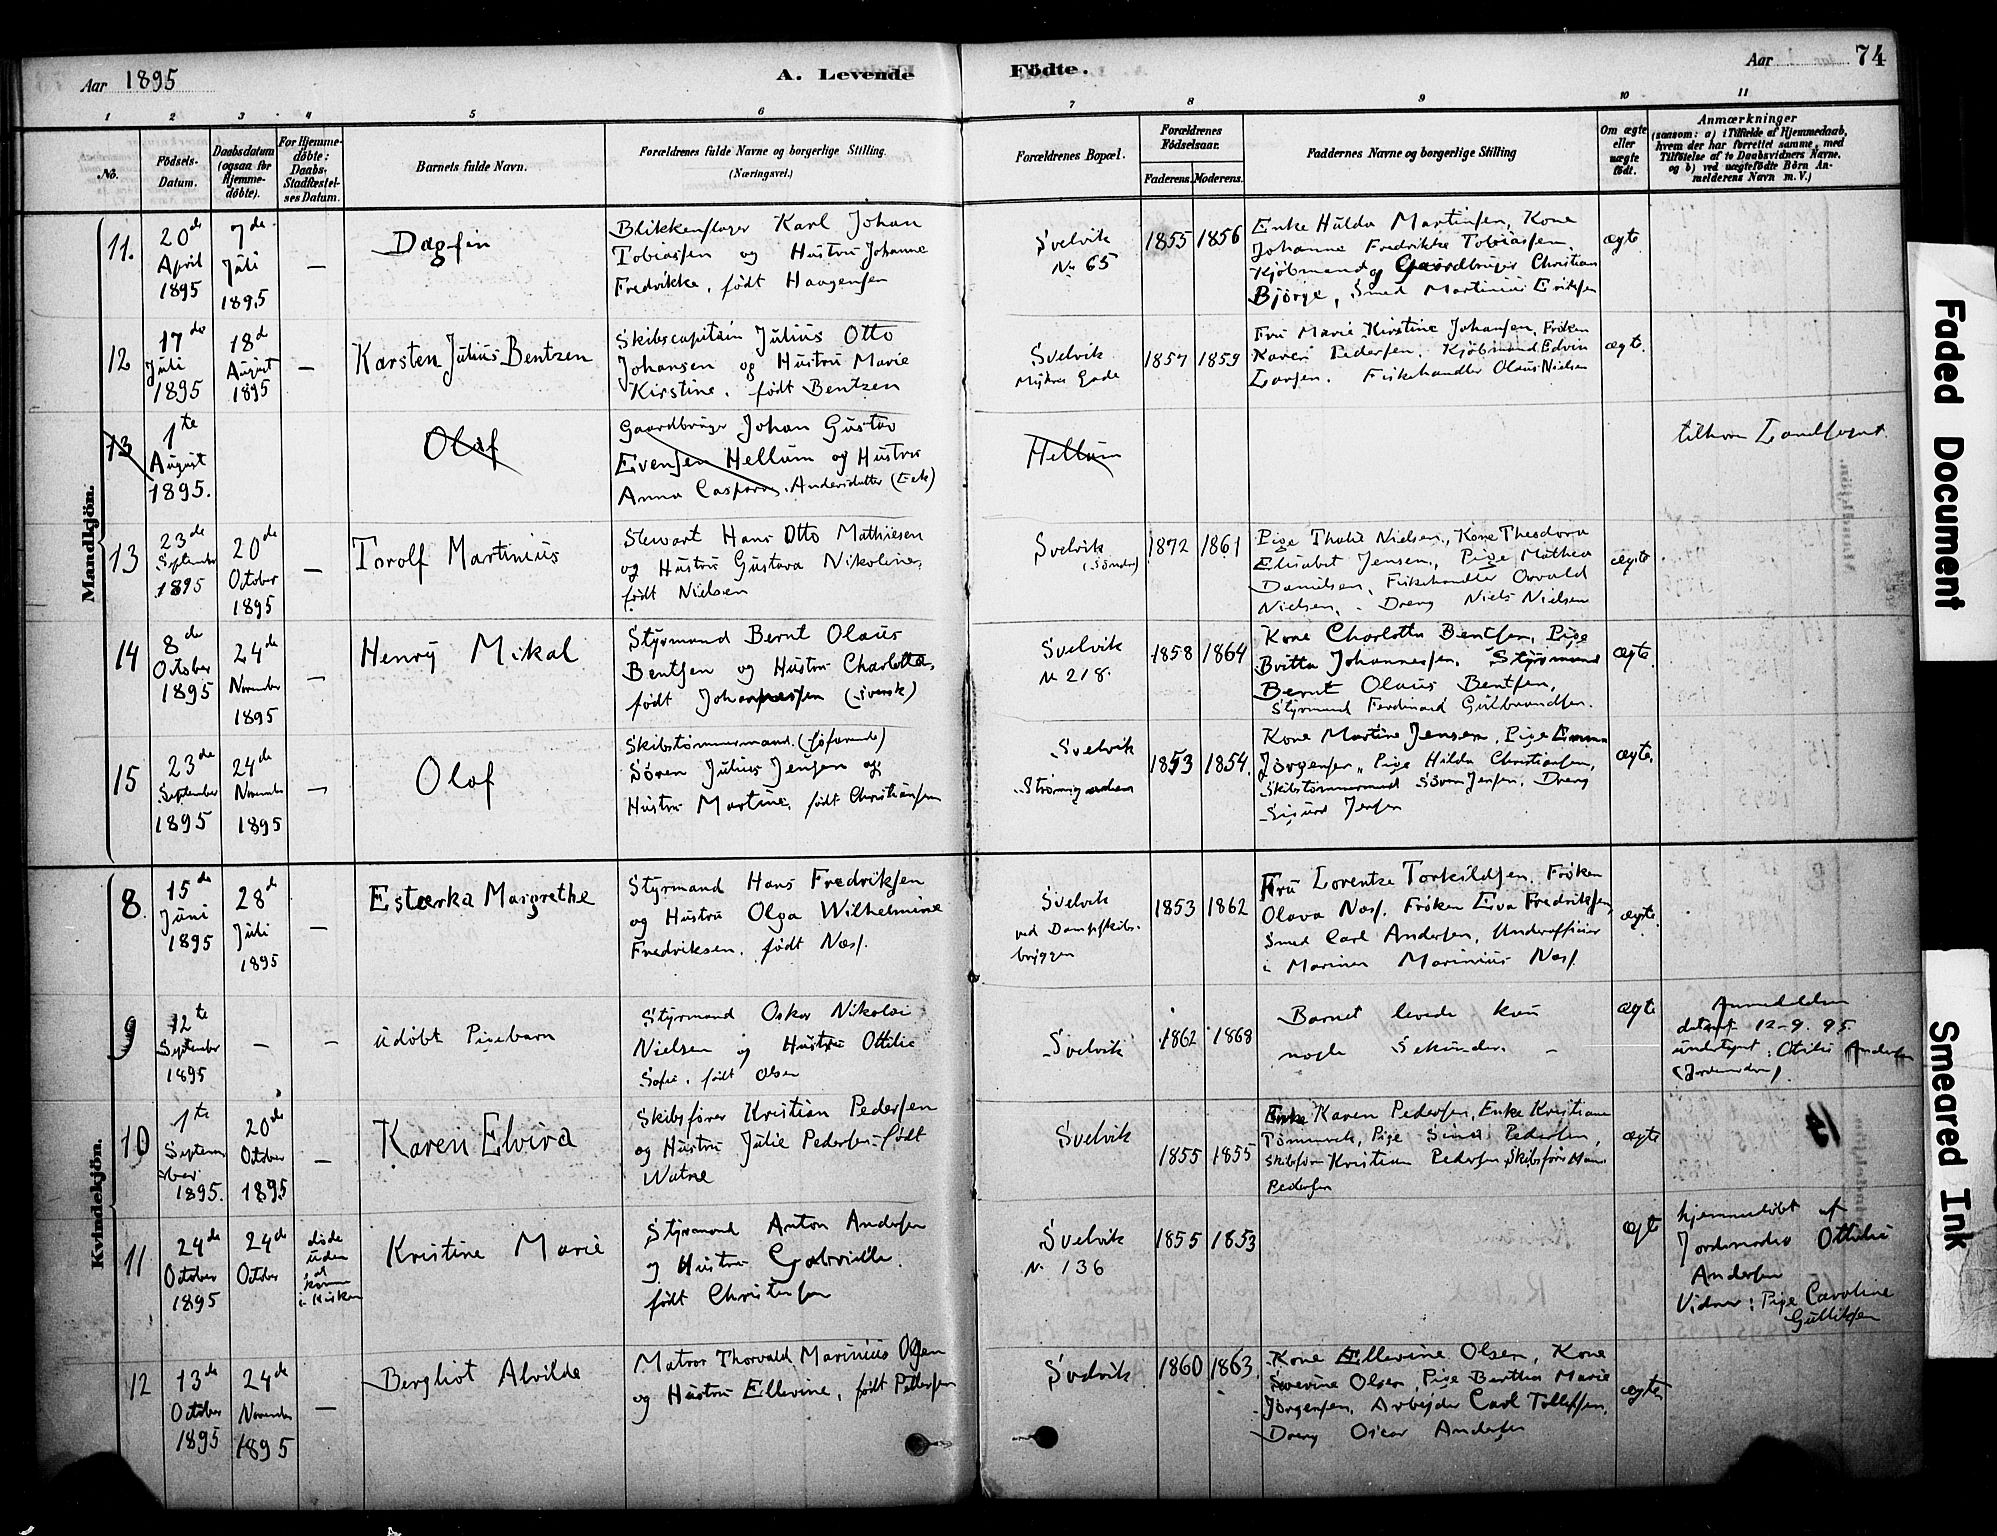 Aar 1895
A. Levende
Födte.
Aar
74
1
2
3
4
5
6
7
8
9
10
11
No.
Födsels-
Datum.
Daabsdatum
(ogsaa för
Hjemme-
döbte).
For Hjemme-
döbte:
Daabs-
Stadfæstel-
ses Datum.
Barnets fulde Navn.
Forældrenes fulde Navne og borgerlige Stilling
(Næringsvei.)
Forældrenes Bopæl.
Forældrenes
Födselsaar.
Faderens.
Moderens.
Faddernes Navne og borgerlige Stilling
Om ægte
eller
uægte
födt.
Anmærkninger
(saasom: a) i Tilfælde af Hjemmedaab,
hvem der har forrettet samme, med
Tilföielse af to Daabsvidners Navne,
og b) ved uægtefödte Börn An-
melderens Navn m. V.)
Mandkjön.
11.
20de
April
1895
7de
Juli
1895
—
Dagfin
Blikkenslager Karl Johan
Tobiassen og Hustru Johanne
Fredrikke, født Haagensen
Svelvik
No 65
1855
1856
Enke Hulda Martinsen, Kone
Johanne Fredrikke Tobiassen,
Kjøbmand og Gaardbruger Christian
Bjørge, Smed Martinius Eriksen
ægte
12
17de
Juli
1895
18d
August
1895
—
Karsten Julius Bentzen
Skibscapitain Julius Otto
Johansen og Hustru Marie
Kirstine, født Bentzen
Svelvik
Gade
1857
1859
Fru Marie Kirstine Johansen, Frøken
Karen Pedersen. Kjøbmand Edvin
Larsen. Fiskehandler Olaus Nielsen
ægte.
13
1te
August
1895.
Olaf
Gaardbruger Johan Gustav
Evensen Hellum og Hustru
Anna Caspara Andersdatter (Eek)
Hellum
tilhører Landsognet.
13
23de
September
1895
20de
October
1895
—
Torolf Martinius
Stewart Hans Otto Mathiesen
og Hustru Gustava Nikoline,
født Nielsen
Svelvik
(Søndre)
1872
1861
Pige Thala Nielsen, Kone Theodora
Elisabet Jensen, Pige Mathea
Danielsen, Fiskehandler Osvald
Nielsen, Dreng Niels Nielsen
ægte
14
8de
October
1895
24de
November
1895
—
Henry Mikal
Styrmand Bernt Olaus
Bentsen og Hustru Charlotta,
født Johannessen (svensk)
Svelvik
No 218.
1858
1864
Kone Charlotta Bentsen, Pige
Britta Johannessen. Styrmand
Bernt Olaus Bentsen,
Styrmand Ferdinand Gulbrandsen.
ægte
15
23de
September
1895
24de
November
1895
—
Olaf
Skibstømmermand (søfarende)
Søren Julius Jensen og
Hustru Martine, født Christiansen
Svelvik
1853
1854.
Kone Martine Jensen, Pige Emma
Jørgensen, Pige Hilda Christiansen,
Skibstømmermand Søren Jensen, Dreng
Sigurd Jensen
ægte.
Kvindekjön.
8.
15de
Juni
1895
28d
Juli
1895
—
Esterka Margrethe
Styrmand Hans Fredriksen
og Hustru Olga Wilhelmine
Fredriksen, født Næss.
Svelvik
ved Dampskibs-
bryggen
1853
1862
Fru Lorentze Torkildsen. Frøken
Olava Næss. Frøken Eva Fredriksen,
Smed Carl Andersen, Underofficier
i Marinen Marinius Næss
ægte.
9
12te
September
1895
—
—
Udøbt Pigebarn
Styrmand Oskar Nikolai
Nielsen og Hustru Ottilie
Sofie, født Olsen
Svelvik
1862
1868
Barnet levede kun
nogle Sekunder. —
ægte
Anmeldelsen
dateret 12-9. 95.
undertegnet: Otilie Andersen
(Jordemoder).
10
1te
Septem-
ber
1895.
20de
October
1895
—
Karen Elvira
Skibsfører Kristian Pedersen
og Hustru Julie Pedersen født
Watne
Svelvik
1855
1855
Enke Karen Pedersen, Enke Kristiane
Tømmerek, Pige Sina Pedersen,
Skibsfører Kristian Pedersen, Skibsfører
Pedersen
ægte
11
24de
October
1895
24de
October
døde
uden
at
komme
i Kirken
Kristine Marie
Styrmand Anton Andersen
og Hustru Gabrielle.
født Christensen
Svelvik
No. 136
1855
1853
ægte
hjemmedøbt af
Jordemoder Ottilie
Andersen
Vidner: Pige Caroline
Gulliksen
12
13de
October
1895
24de
November
1895
—
Bergliot Alvilde
Matros Thorvald Marinius Olsen
og Hustru Ellevine, født Pettersen
Svelvik
1860
1863
Kone Ellevine Olsen, Kone
Severine Olsen, Pige Bertha Marie
Jørgensen, Arbeider Carl Tollefsen,
Dreng Oscar Andersen
ægte
Faded Document
Smeared Ink